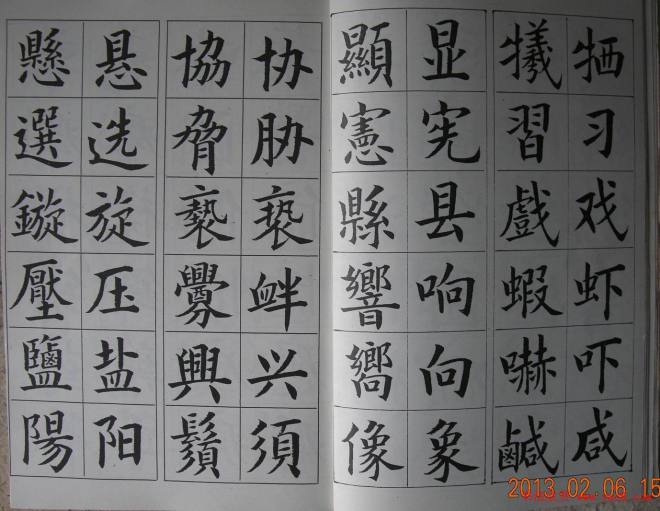 牺习戏虾吓咸
犧習戲蝦嚇鹹
显宪县响向象
顯憲縣響嚮像
协胁亵衅兴須
協脅褻釁興鬚
悬选旋压盐阳
懸選鏇壓鹽陽
2013.02.06 15